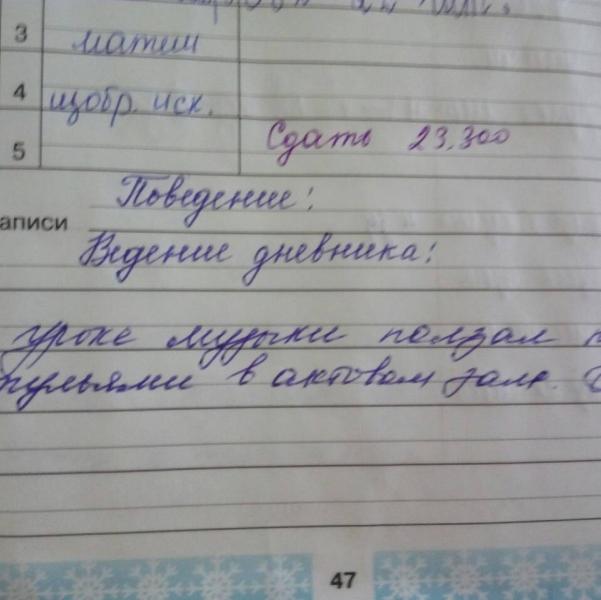 3 матем
4 изобр. иск.
5 Сдать 23,300
Поведение!
аписи
Ведение дневника!
уроке музыки ползал п
тульями в актовом зале.
47